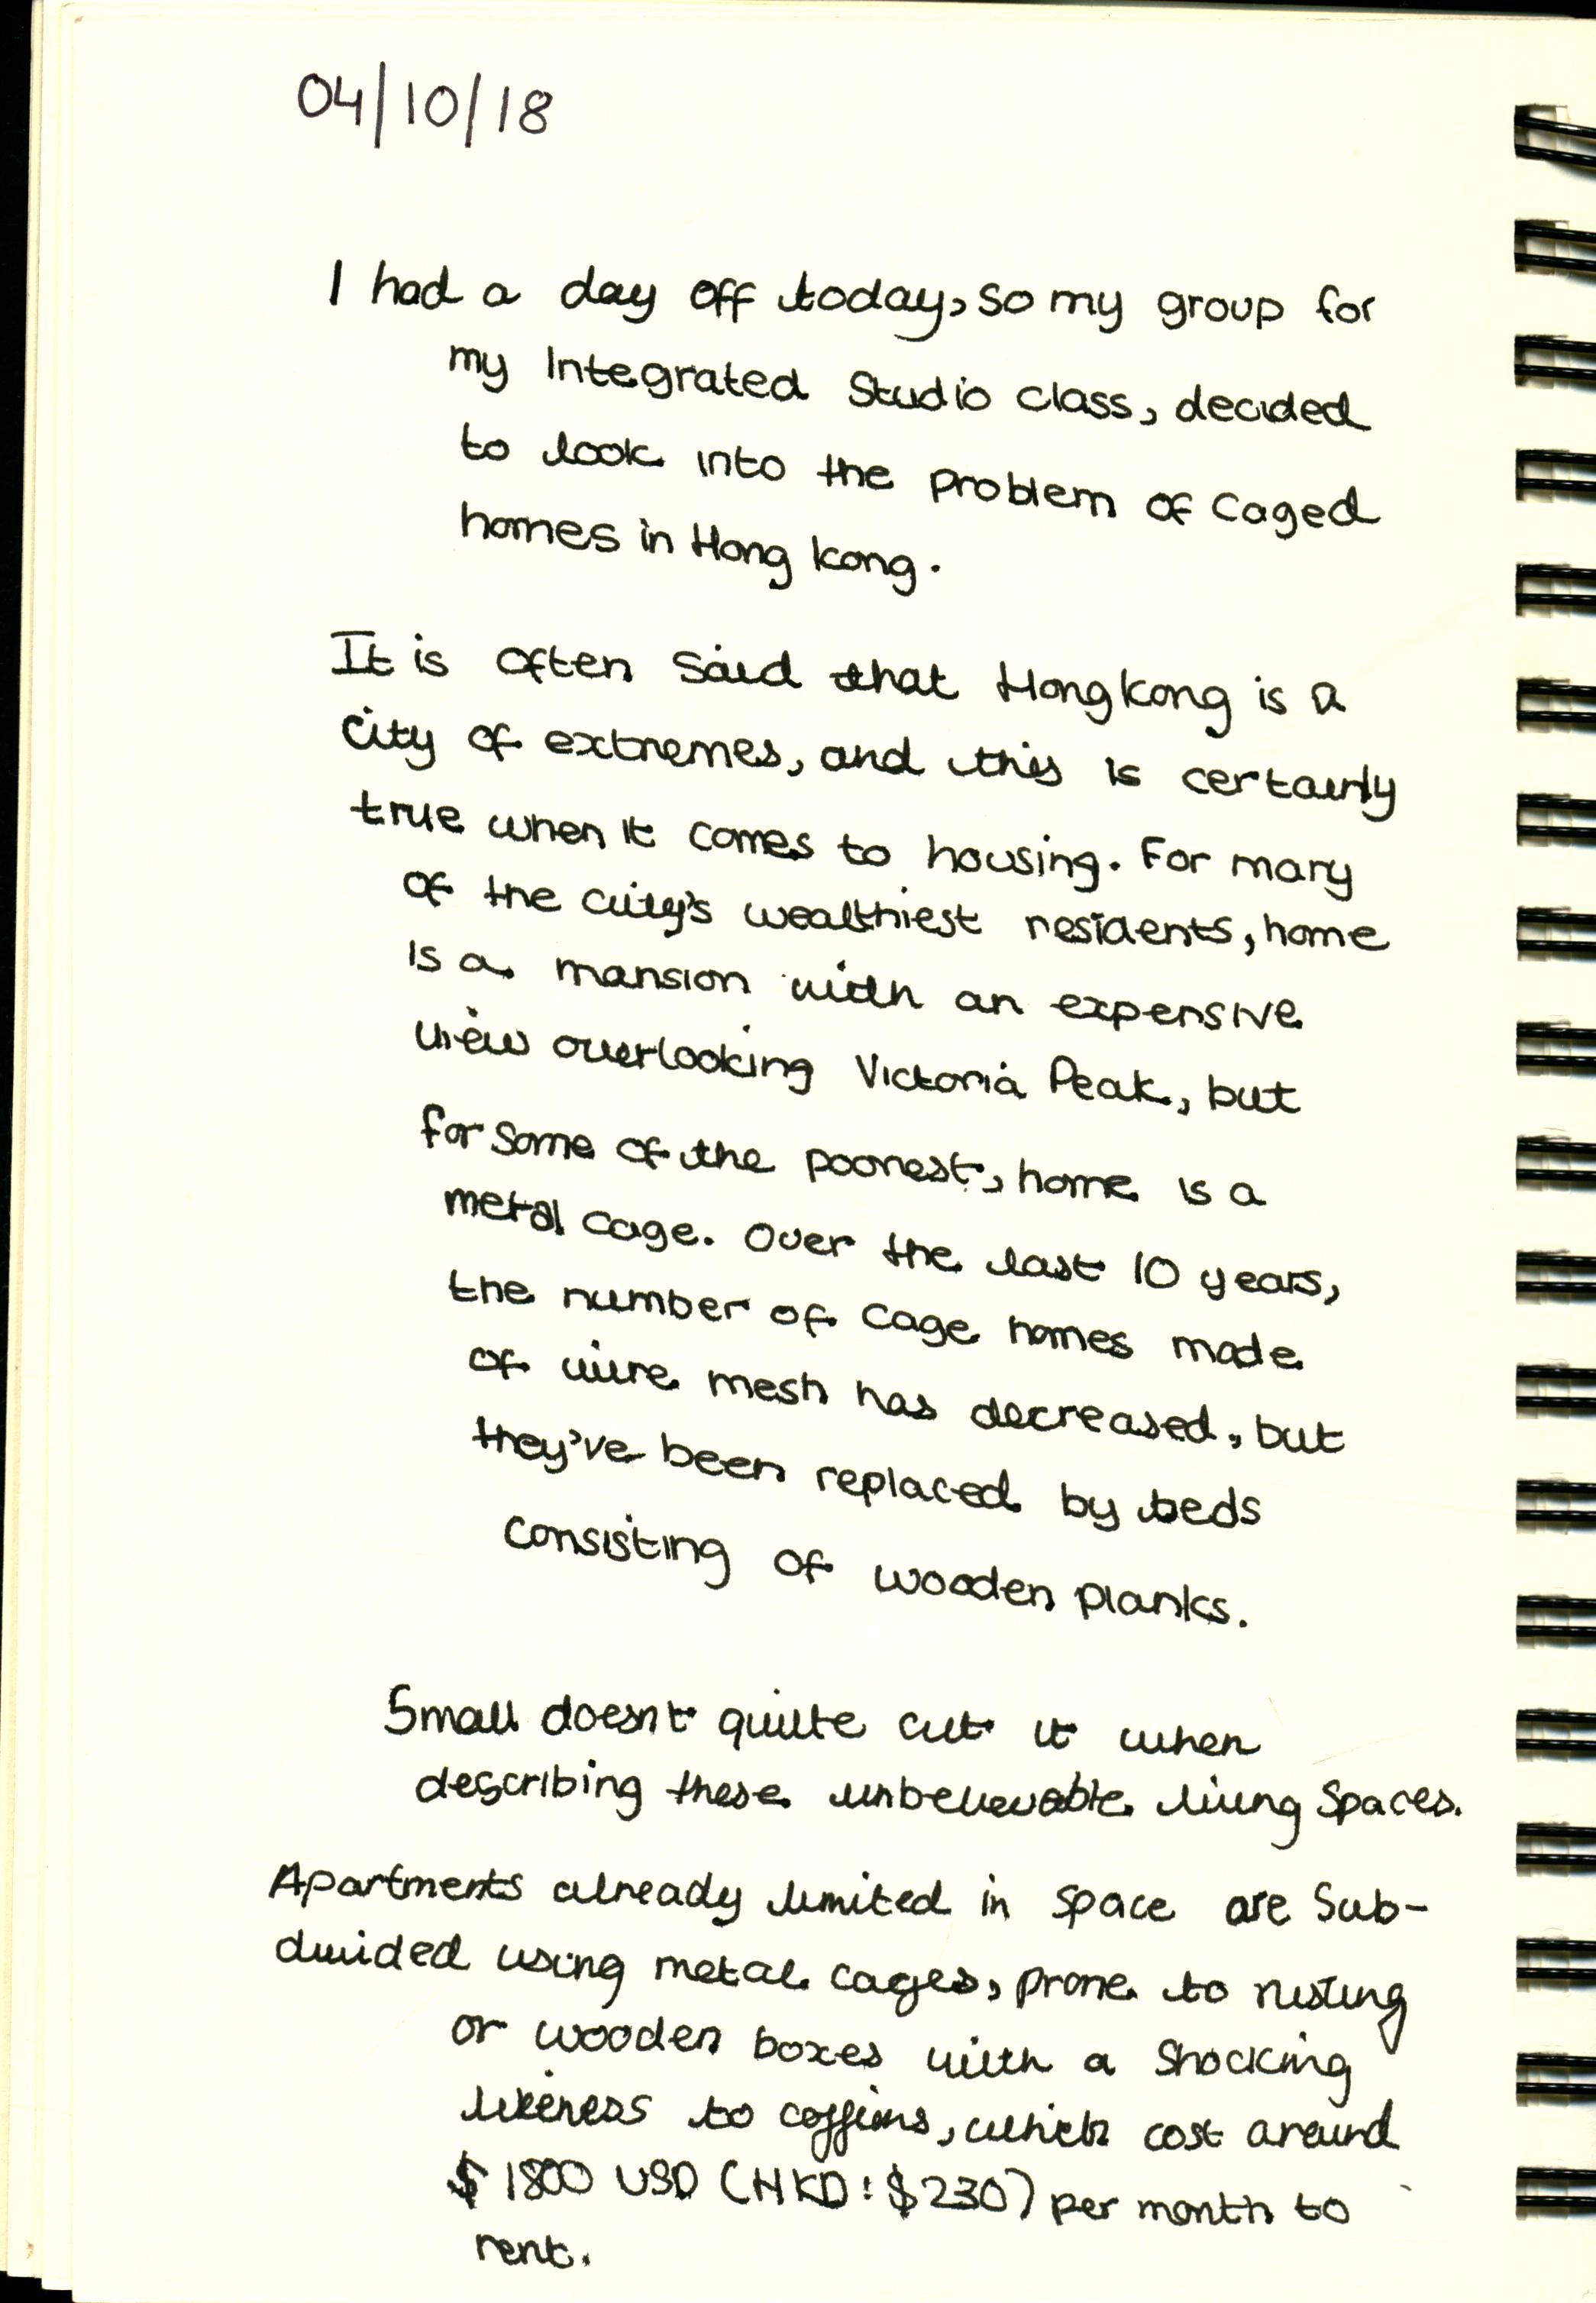 04/10/18
I had a day off today, so my group for
my Integrated Studio class, decided
to look into the problem of Caged
homes in Hong Kong.
It is often said that Hong Kong is a
city of extremes, and this is certainly
true when it comes to housing. For many
of the city's wealthiest residents, home
is a mansion with an expensive
view overlooking Victoria Peak, but
for some of the poorest, home is a
metal cage. Over the last 10 years,
the number of cage homes made
of wire mesh has decreased, but
they've been replaced by beds
consisting of wooden planks.
Small doesn't quite cut it when
describing these unbelievable living spaces.
Apartments already limited in space are sub-
divided using metal cages, prone to rusting
or wooden boxes with a shocking
likeness to coffins, which cost around
$1800 USD (HKD: $230) per month to
rent.